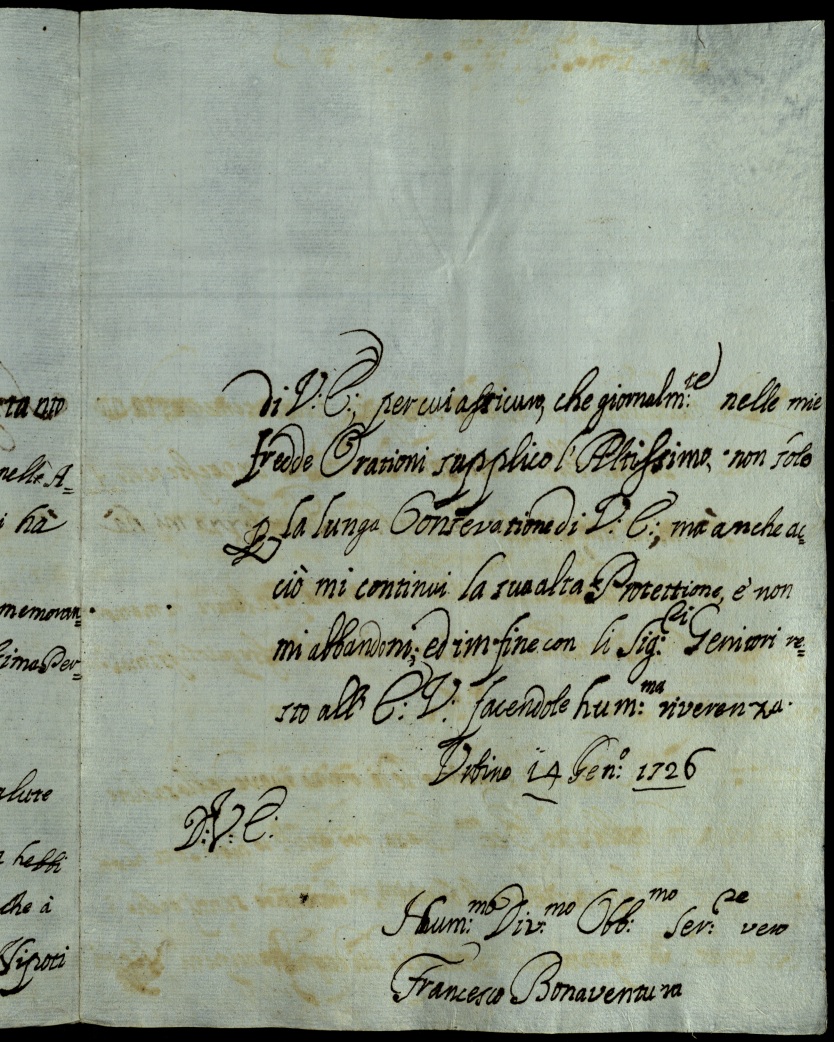 rtanto
nelle A=
i hà
memoran=
tima Per=
alute
n hebbi
che à
Nipoti
di V: E:, per cui assicuro, che giornalm:te nelle mie
fredde Orationi supplico l'Altissimo, non solo
P la lunga Conservatione di V: E:, mà anche ac=
ciò mi continui la sua alta Protettione, e non
mi abbandoni; ed in fine con li Sig:ri Genitori re=
sto all' E: V: facendole hum:ma riverenza.
Urbino 14 Gen:o 1726
D: V: E:
Hum:mo Div:mo Obb:mo Ser:re vero
Francesco Bonaventura